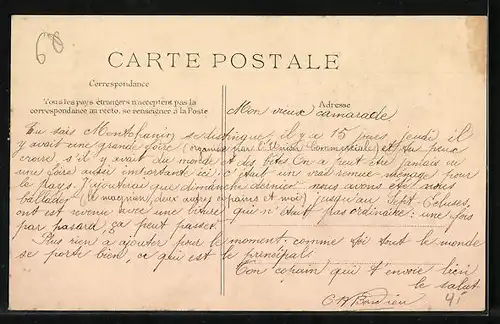 60
CARTE POSTALE
Correspondance
Tous les pays étrangers n'acceptent pas la
correspondance au recto, se renseigner à la Poste
Adresse
Mon vieux camarade
Tu sais Montchanin se distingue, il y a 15 jours, jeudi il
y avait une grande foire (organisée par l'Union Commerciale) et tu peux
croire, s'il y avait du monde et des bêtes. On a peut être jamais vu
une foire aussi importante ici; c'était un vrai remue ménage pour
le pays. J'ajouterai que dimanche dernier nous avons été nous
ballader (M magnien, deux autres copains et moi) jusqu'au Sept-Ecluses,
ont est revenu avec une biture qui n'était pas ordinaire: une fois
par hasard, ça peut passer.
Plus rien a ajouter pour le moment, comme toi tout le monde
se porte bien, ce qui est le principal.
Ton copain qui t'envoie bien
le salut.